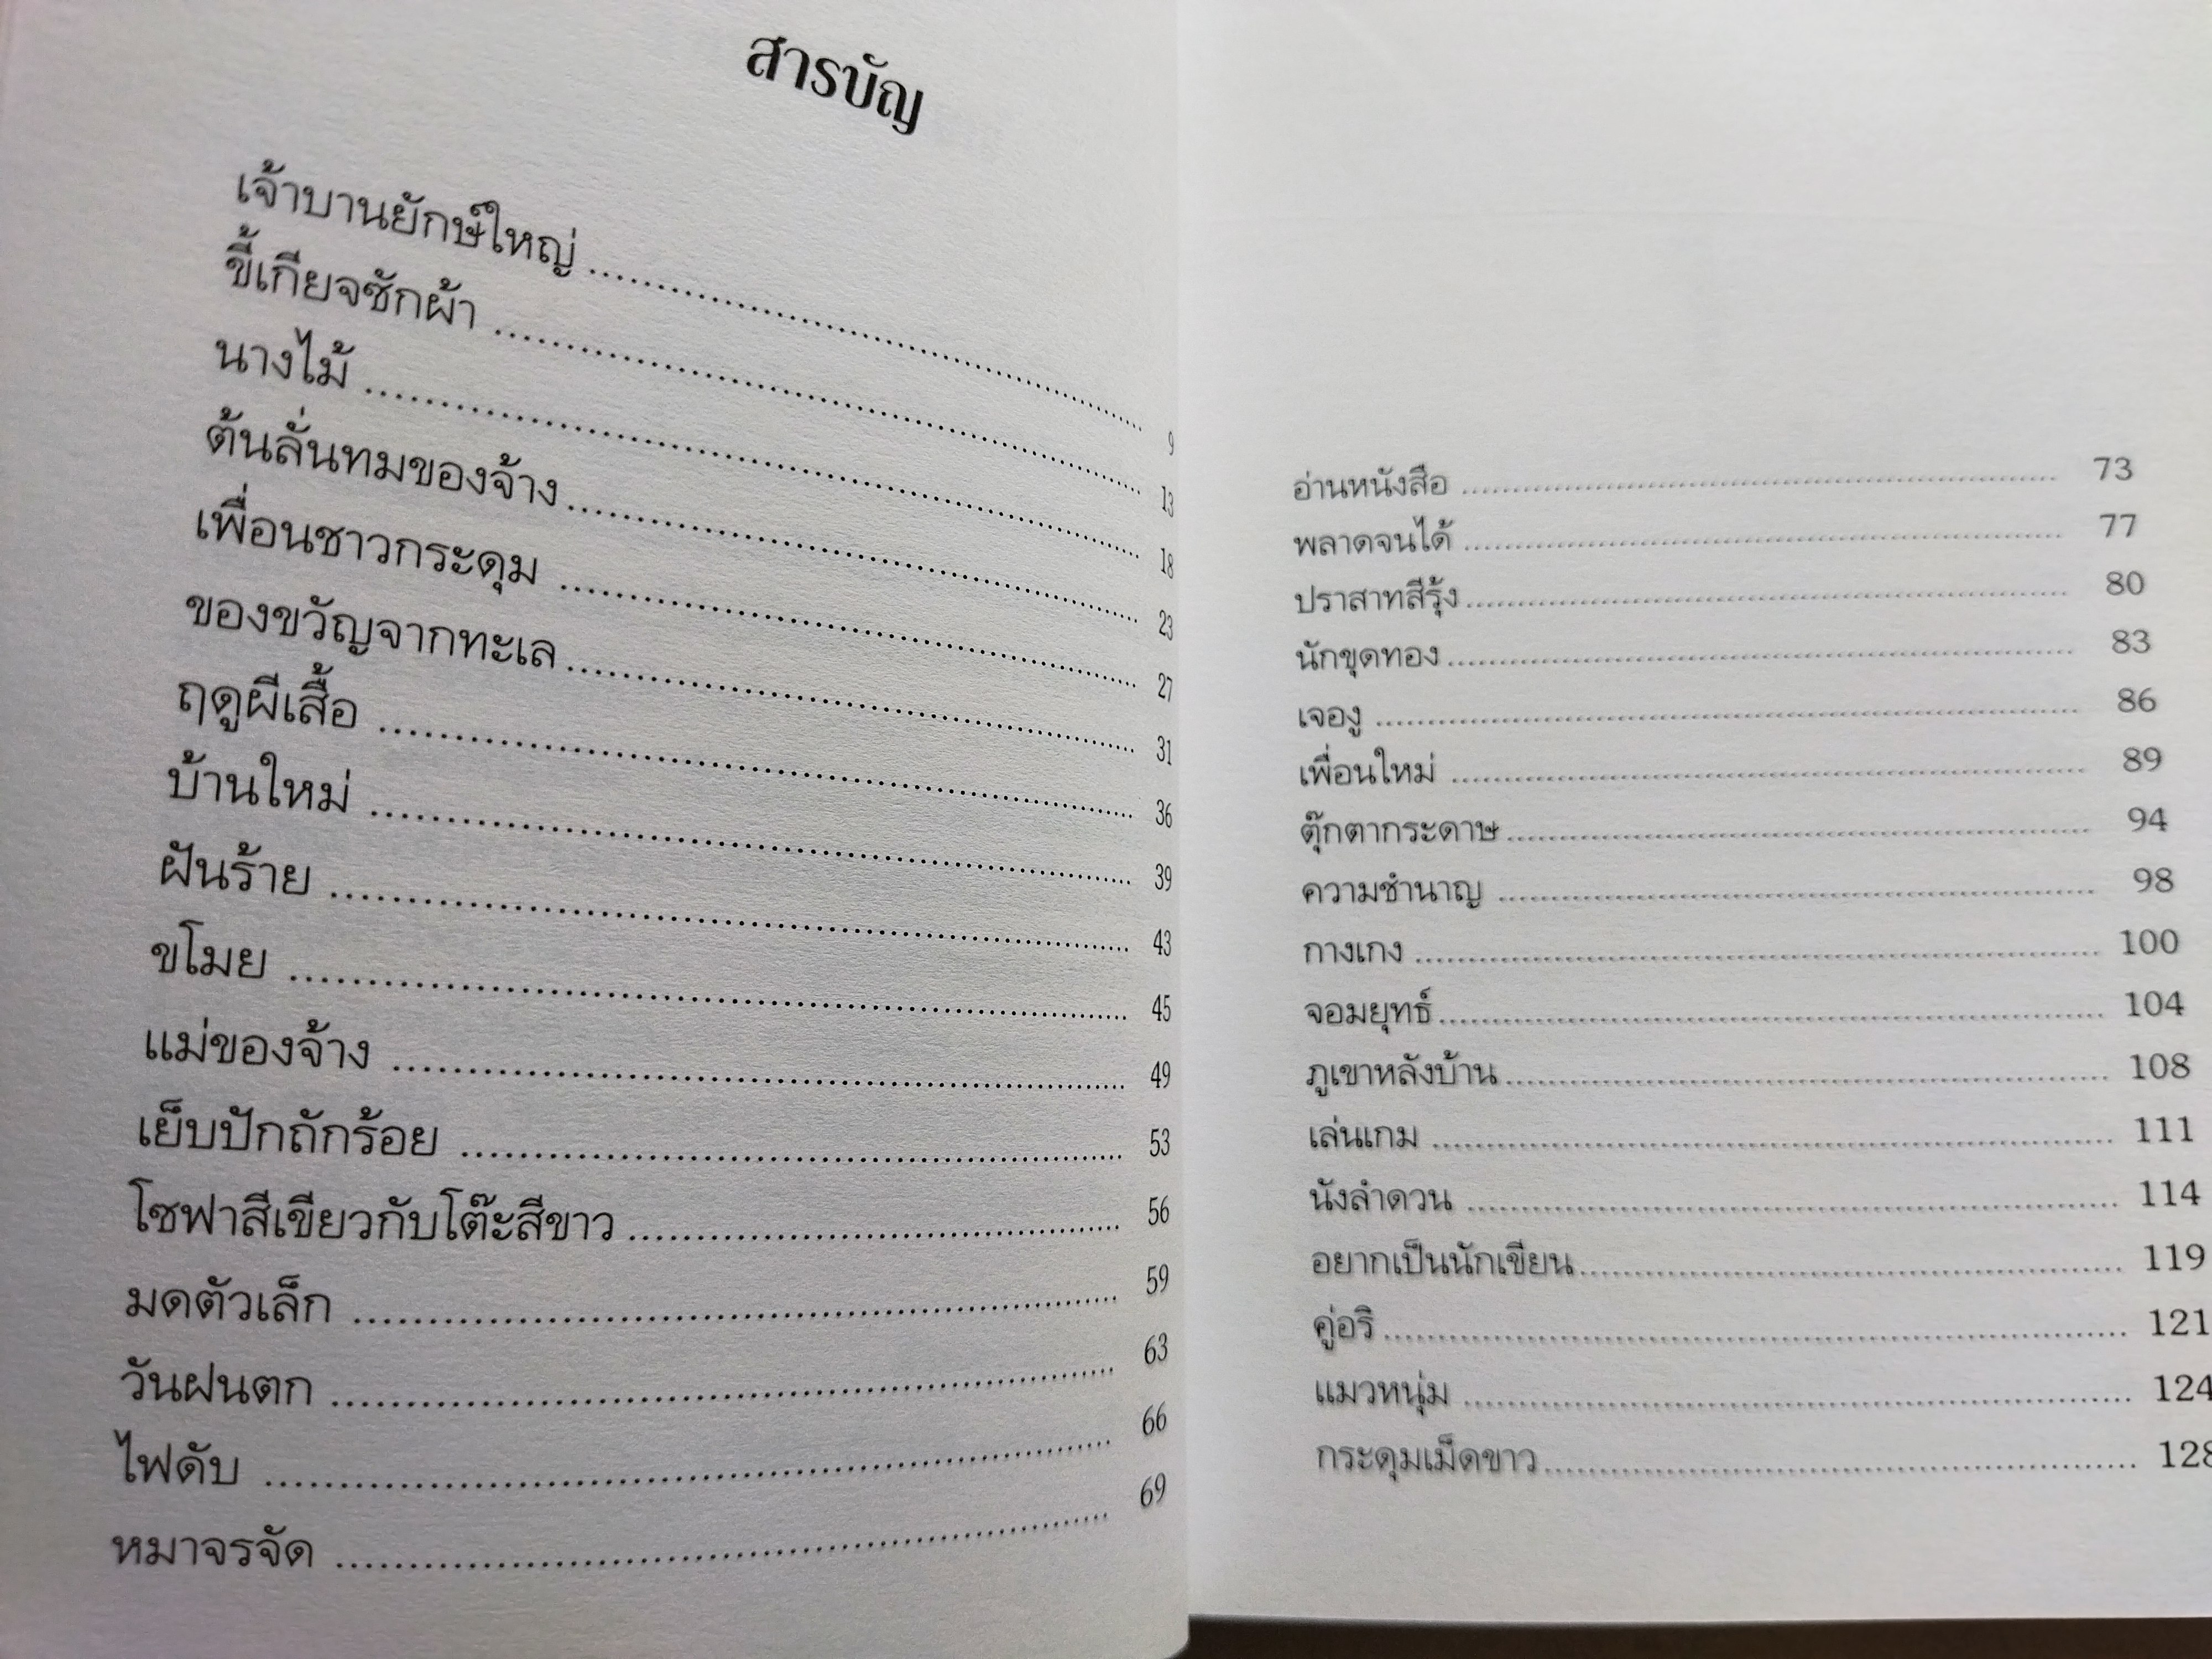 สารบัญ
เจ้าบานยักษ์ใหญ่ ........ 9
ขี้เกียจซักผ้า ........ 13
นางไม้ ........ 18
ต้นลั่นทมของจ้าง ........ 23
เพื่อนชาวกระดุม ........ 27
ของขวัญจากทะเล ........ 31
ฤดูผีเสื้อ ........ 36
บ้านใหม่ ........ 39
ฝันร้าย ........ 43
ขโมย ........ 45
แม่ของจ้าง ........ 49
เย็บปักถักร้อย ........ 53
โซฟาสีเขียวกับโต๊ะสีขาว ........ 56
มดตัวเล็ก ........ 59
วันฝนตก ........ 63
ไฟดับ ........ 66
หมาจรจัด ........ 69
อ่านหนังสือ ........ 73
พลาดจนได้ ........ 77
ปราสาทสีรุ้ง ........ 80
นักขุดทอง ........ 83
เจองู ........ 86
เพื่อนใหม่ ........ 89
ตุ๊กตากระดาษ ........ 94
ความชำนาญ ........ 98
กางเกง ........ 100
จอมยุทธ์ ........ 104
ภูเขาหลังบ้าน ........ 108
เล่นเกม ........ 111
นังลำดวน ........ 114
อยากเป็นนักเขียน ........ 119
คู่อริ ........ 121
แมวหนุ่ม ........ 124
กระดุมเม็ดขาว ........ 128